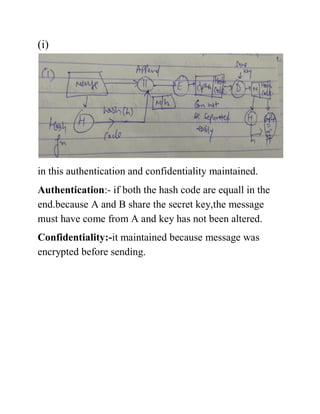 (i)
(1) Message Append Same key
|| E Cipher Hash Code D M Hash Code
M/h Can not
Hash H hash(h) be separated H
fn Code easily h
in this authentication and confidentiality maintained.
Authentication:- if both the hash code are equall in the
end.because A and B share the secret key,the message
must have come from A and key has not been altered.
Confidentiality:-it maintained because message was
encrypted before sending.